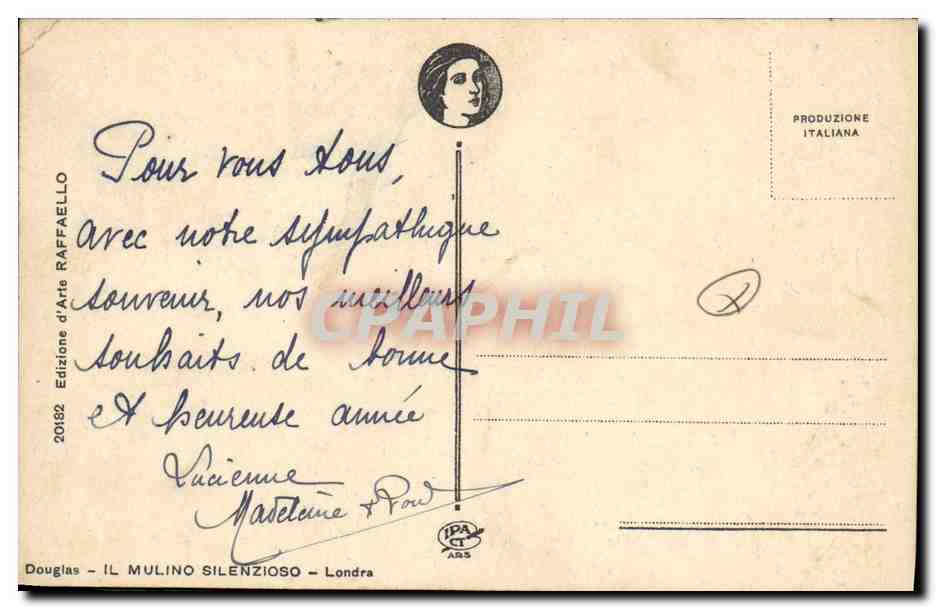 Pour vous tous,
avec notre sympathique
souvenir, nos meilleurs
souhaits de bonne
et heureuse année
Lucienne
Madeleine &
20182 Edizione d'Arte RAFFAELLO
PRODUZIONE
ITALIANA
CPAPHIL
IPA
CT
ARS
Douglas – IL MULINO SILENZIOSO – Londra